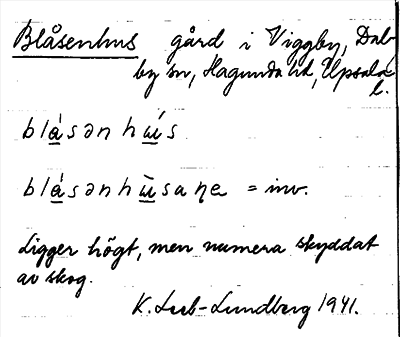 Blåsenhus gård i Viggby, Dal-
by sn, Hagunda hd, Upsala
l.
blá̱sənhɯ̱́s
blá̱sənhɯ̱̀saṇa = inv.
Ligger högt, men numera skyddat
av skog.
K. Leib-Lundberg 1941.